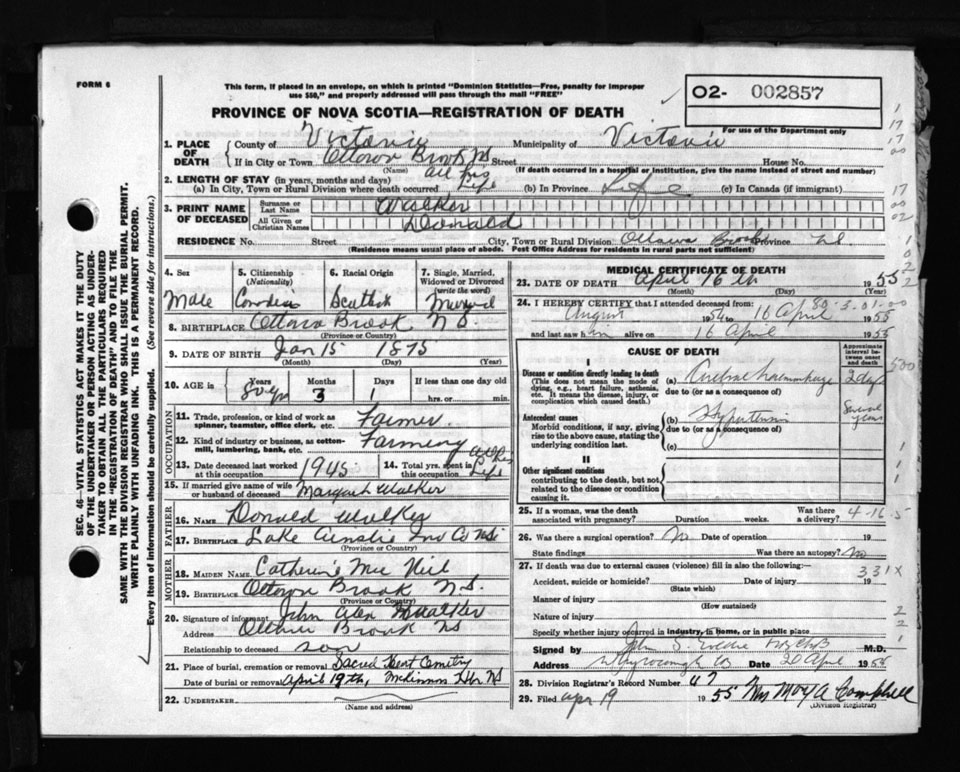 FORM 6
This form, if placed in an envelope, on which is printed "Dominion Statistics—Free, penalty for improper
use $50," and properly addressed will pass through the mail "FREE"
O2- 002857
PROVINCE OF NOVA SCOTIA—REGISTRATION OF DEATH
For use of the Department only
1. PLACE OF DEATH
County of Victoria Municipality of Victoria
If in City or Town Ottawa Brook NS Street House No.
(Name) (If death occurred in a hospital or institution, give the name instead of street and number)
2. LENGTH OF STAY (in years, months and days) All his
(a) In City, Town or Rural Division where death occurred Life (b) In Province Life (c) In Canada (if immigrant)
3. PRINT NAME OF DECEASED
Surname or Last Name Walker
All Given or Christian Names Donald
RESIDENCE No. Street City, Town or Rural Division Ottawa Brook Province N.S.
(Residence means usual place of abode. Post Office Address for residents in rural parts not sufficient)
4. Sex Male
5. Citizenship (Nationality)
6. Racial Origin Scottish
7. Single, Married, Widowed or Divorced (write the word) Married
8. BIRTHPLACE Ottawa Brook N S.
(Province or Country)
9. DATE OF BIRTH Jan 15 1875
(Month) (Day) (Year)
10. AGE is Years 80 Months 3 Days 1 If less than one day old
hrs. or min.
OCCUPATION
11. Trade, profession, or kind of work as
spinner, teamster, office clerk, etc. Farmer
12. Kind of industry or business, as cotton-
mill, lumbering, bank, etc. Farming
13. Date deceased last worked at this occupation 1945
14. Total yrs. spent in this occupation all his Life
15. If married give name of wife or husband of deceased Margaret Walker
FATHER
16. NAME Donald Walker
17. BIRTHPLACE Lake Ainslie Inv Co NS
(Province or Country)
MOTHER
18. MAIDEN NAME Catherine Mac Neil
19. BIRTHPLACE Ottawa Brook N.S.
(Province or Country)
20. Signature of informant John Alex Walker
Address Ottawa Brook NS
Relationship to deceased son
21. Place of burial, cremation or removal Sacred Heart Cemetery
Date of burial or removal April 19th, McKinnon Hbr NS
22. UNDERTAKER
(Name and address)
MEDICAL CERTIFICATE OF DEATH
23. DATE OF DEATH April 16th 1955
(Month) (Day) (Year)
24. I HEREBY CERTIFY that I attended deceased from:
August 1954 to 16 April 1955
and last saw him alive on 16 April 1955
CAUSE OF DEATH
Approximate interval between onset and death
I
Disease or condition directly leading to death
(This does not mean the mode of dying, e.g., heart failure, asthenia, etc. It means the disease, injury, or complication which caused death.)
(a) Cerebral haemorrhage 2 days
due to (or as a consequence of)
Antecedent causes
Morbid conditions, if any, giving rise to the above cause, stating the underlying condition last.
(b) Hypertension Several years
due to (or as a consequence of)
(c)
II
Other significant conditions
contributing to the death, but not related to the disease or condition causing it.
25. If a woman, was the death associated with pregnancy? Duration weeks. Was there a delivery? 4-16-5
26. Was there a surgical operation? No Date of operation 19
State findings Was there an autopsy? No
27. If death was due to external causes (violence) fill in also the following:— 331X
Accident, suicide or homicide? Date of injury 19
(State which)
Manner of injury
(How sustained)
Nature of injury
Specify whether injury occurred in industry, in home, or in public place
Signed by M.D.
Address Whycocomagh Date 20 April 1955
28. Division Registrar's Record Number 47
29. Filed Apr 19 1955 Mrs Moy A Campbell
(Division Registrar)
SEC. 46—VITAL STATISTICS ACT MAKES IT THE DUTY
OF THE UNDERTAKER OR PERSON ACTING AS UNDER-
TAKER TO OBTAIN ALL THE PARTICULARS REQUIRED
IN THE "REGISTRATION OF DEATH" AND TO FILE THE
SAME WITH THE DIVISION REGISTRAR WHO SHALL ISSUE THE BURIAL PERMIT.
WRITE PLAINLY WITH UNFADING INK. THIS IS A PERMANENT RECORD.
Every item of information should be carefully supplied. (See reverse side for instructions.)